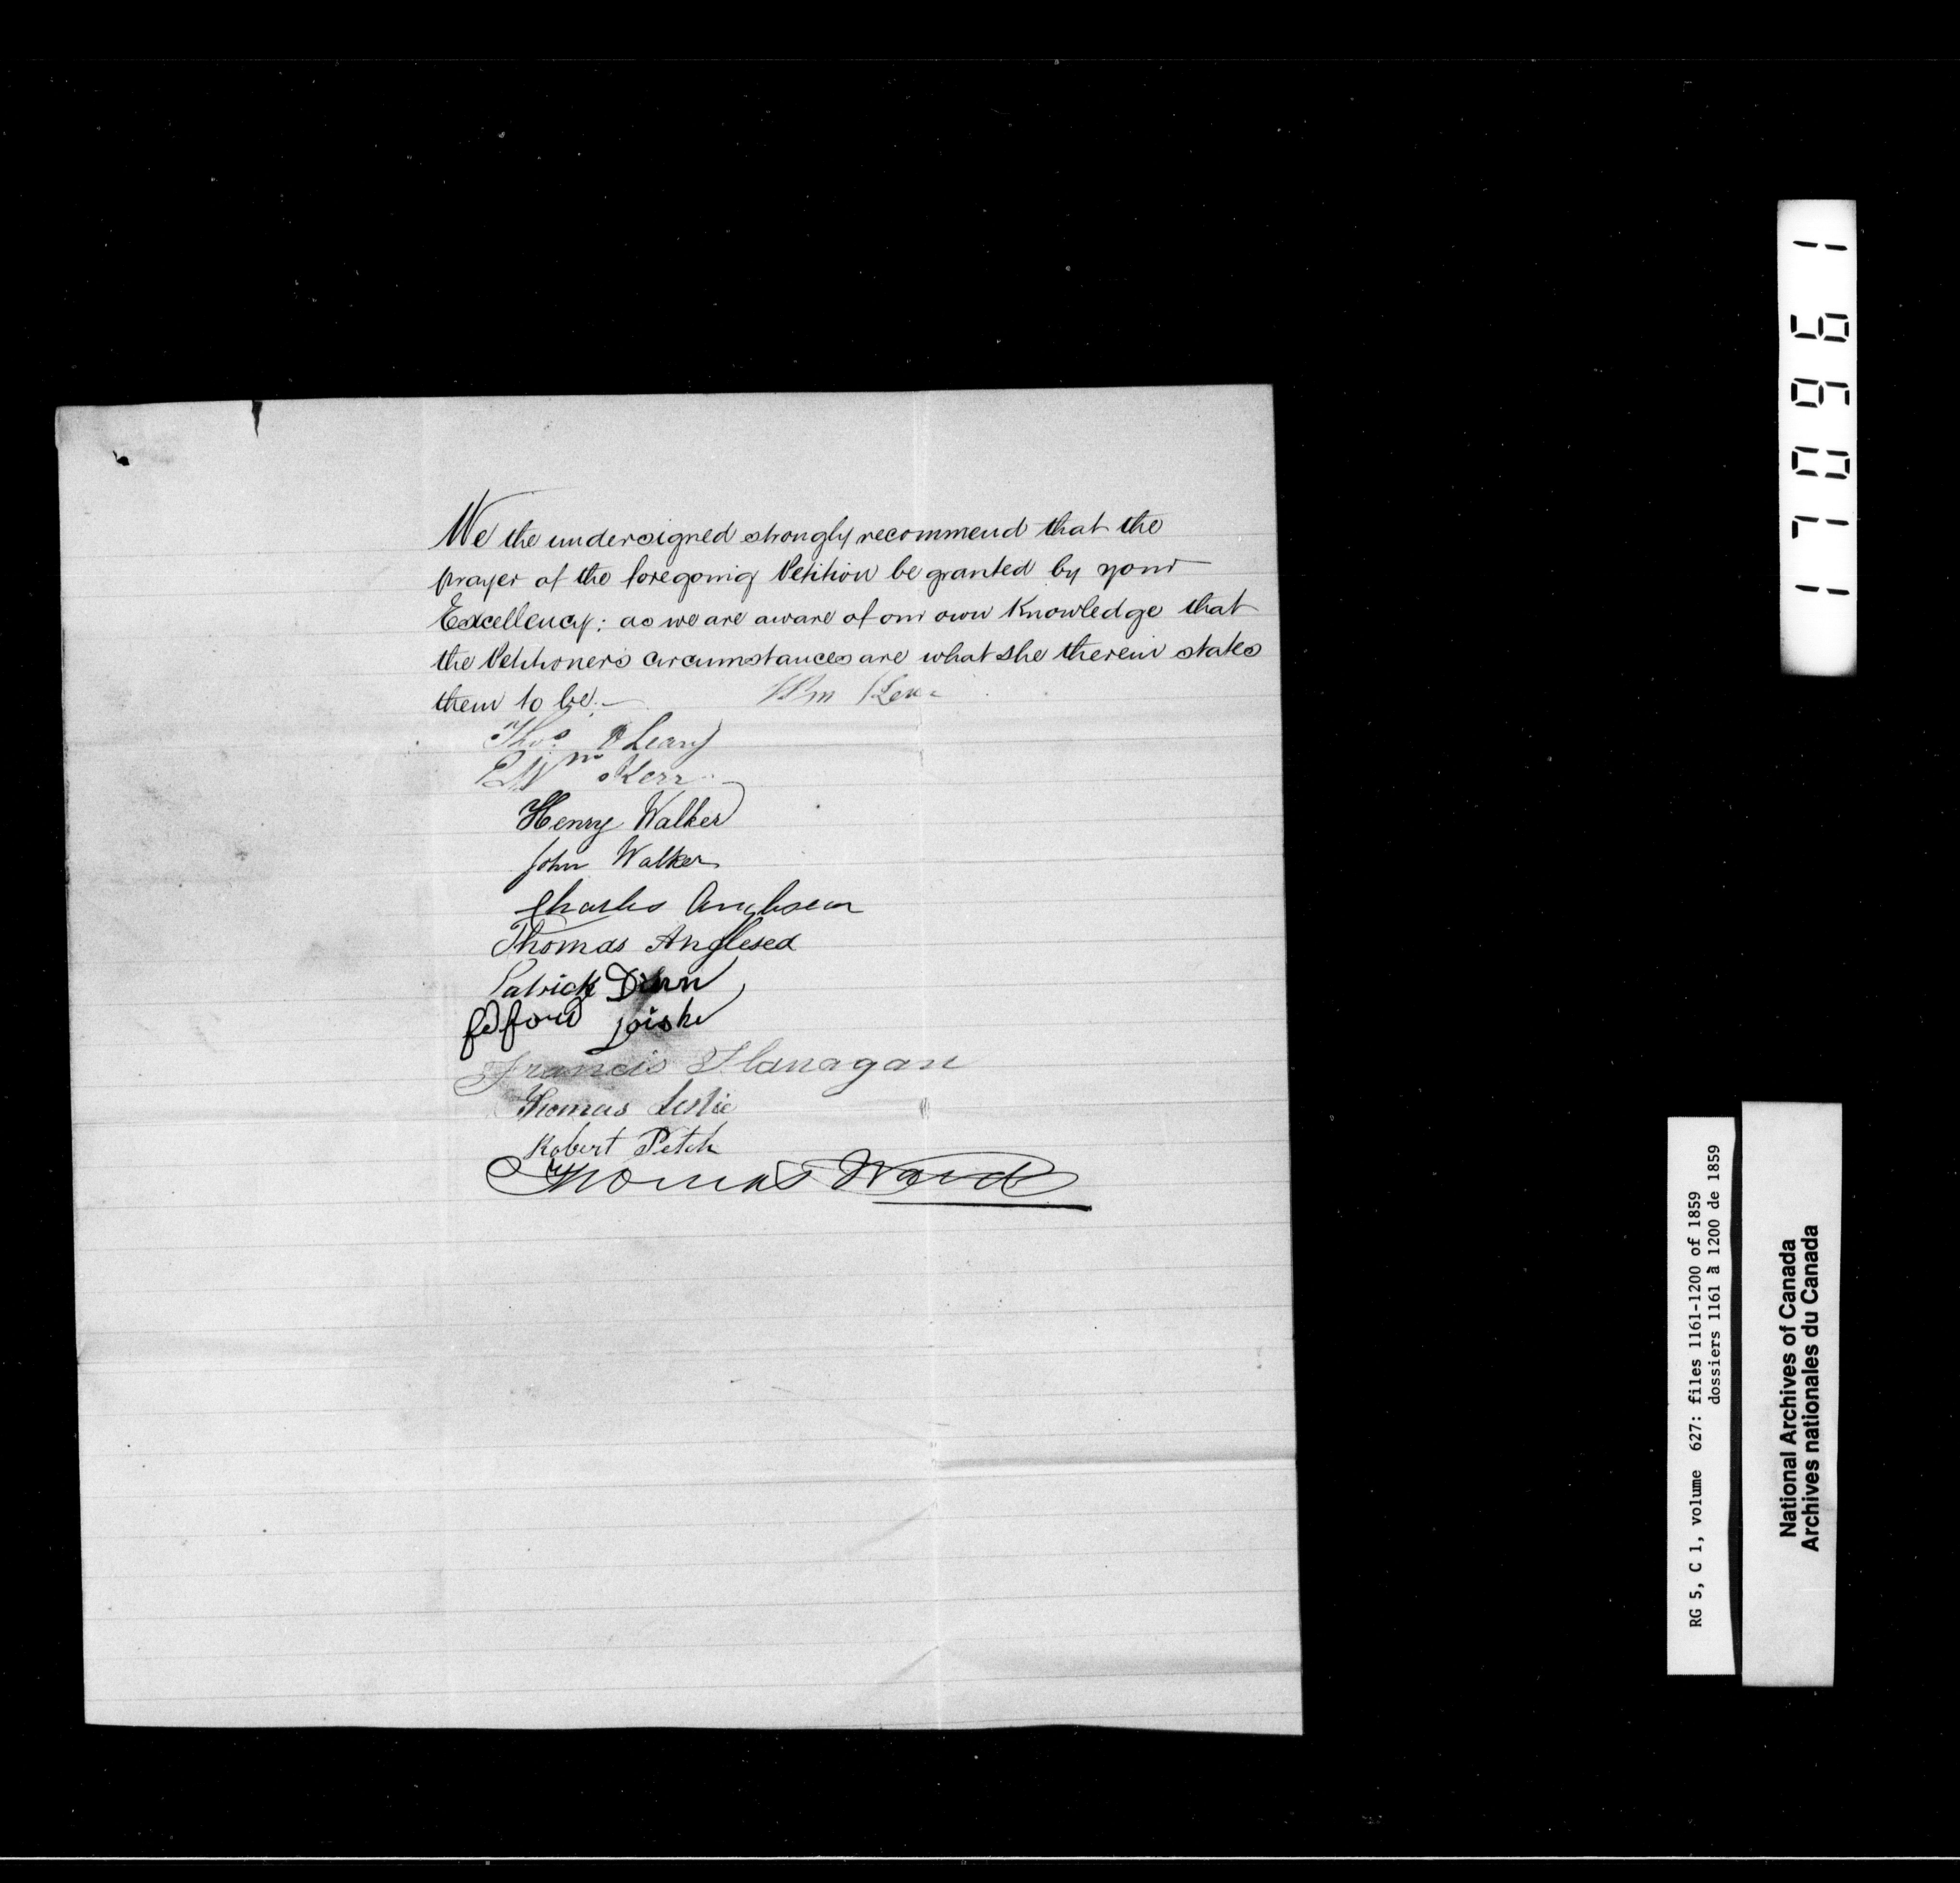 We the undersigned strongly recommend that the
prayer of the foregoing Petition be granted by your
Excellency: as we are aware of our own Knowledge that
the Petitioners circumstances are what she therein states
them to be.—
Wm
Thos. O Leary
Wm Kerr
Henry Walker
John Walker
Charles
Thomas Anglesea
Patrick Dunn
Francis Flanagan
Thomas Leslie
Robert Petch
Thomas Ward
170961
RG 5, C 1, volume 627: files 1161-1200 of 1859
dossiers 1161 à 1200 de 1859
National Archives of Canada
Archives nationales du Canada